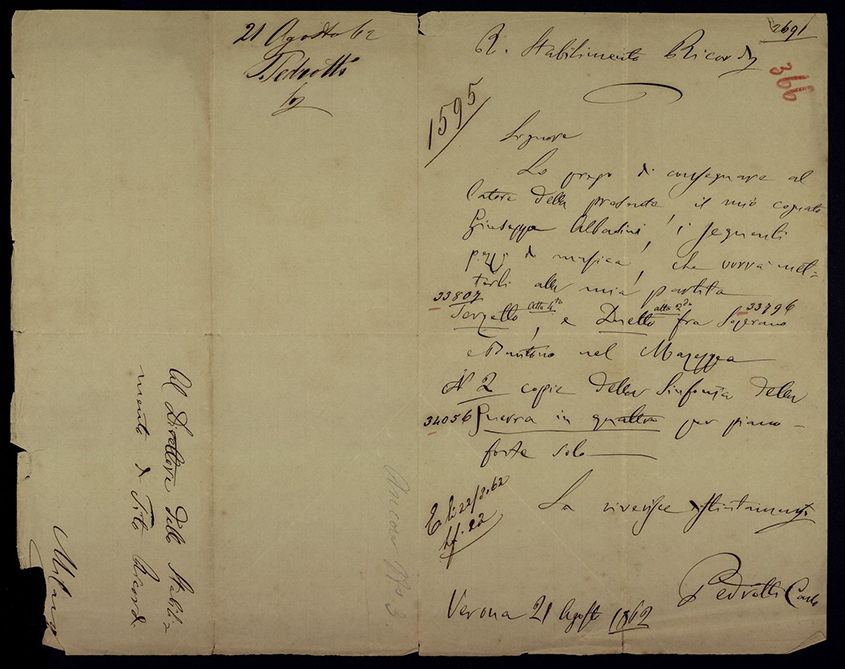 21 Agosto 62
Pedrotti
2691
366
R. Stabilimento Ricordi
1595
Signore
La prego di consegnare al
latore della presente, il mio cognato
Giuseppe Albasini, i seguenti
pezzi di musica, che vorrà met=
terli alla mia partita
33807 atto 4to atto 2do 33796
Terzetto, e Duetto fra Soprano
e Baritono nel Mazeppa
N 2 copie della Sinfonia della
34056 Guerra in quattro per piano-
forte solo
La riverisce distintamente
22/8.62
22
Pedrotti Carlo
Verona 21 Agosto 1862
Ancona No 3.
Al Direttore dello Stabili=
mento di Tito Ricordi
Milano